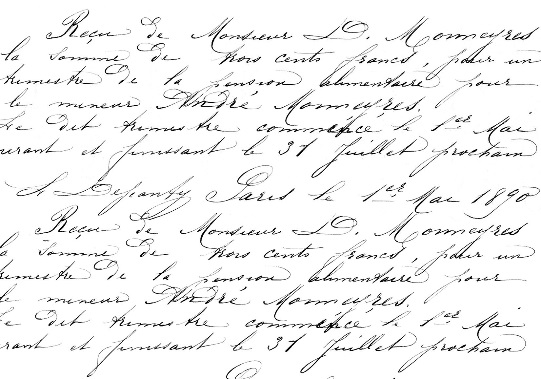 Reçu de Monsieur D. Monneyres
la somme de trois cents francs, pour un
trimestre de la pension alimentaire pour
le mineur André Monneyres.
Le dit trimestre commencé le 1er Mai
courant et finissant le 31 Juillet prochain
Paris le 1er Mai 1890
Reçu de Monsieur D. Monneyres
la somme de trois cents francs, pour un
trimestre de la pension alimentaire pour
le mineur André Monneyres.
Le dit trimestre commencé le 1er Mai
courant et finissant le 31 Juillet prochain